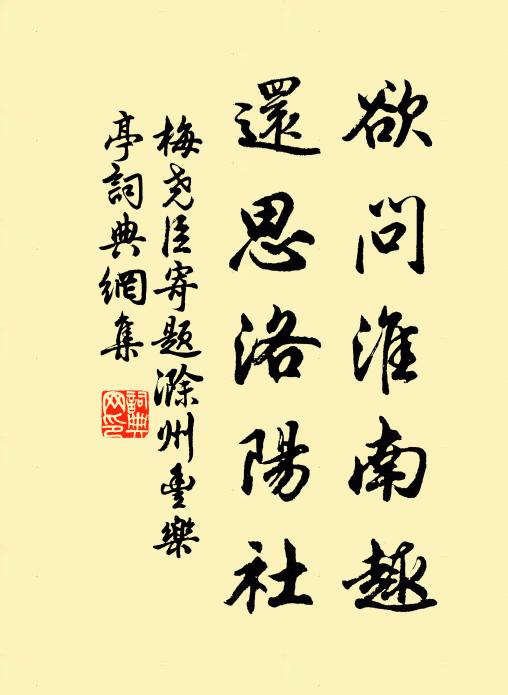 欲问淮南趣
還思洛陽社
梅尧臣寄題滁州豐樂
亭詞典網集
詞典网印